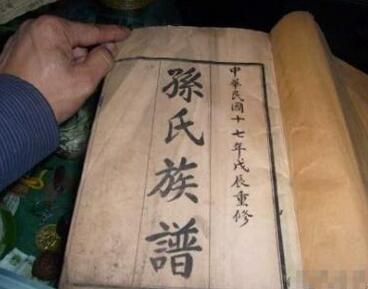 中華民國十七年戊辰重修
孫氏族譜